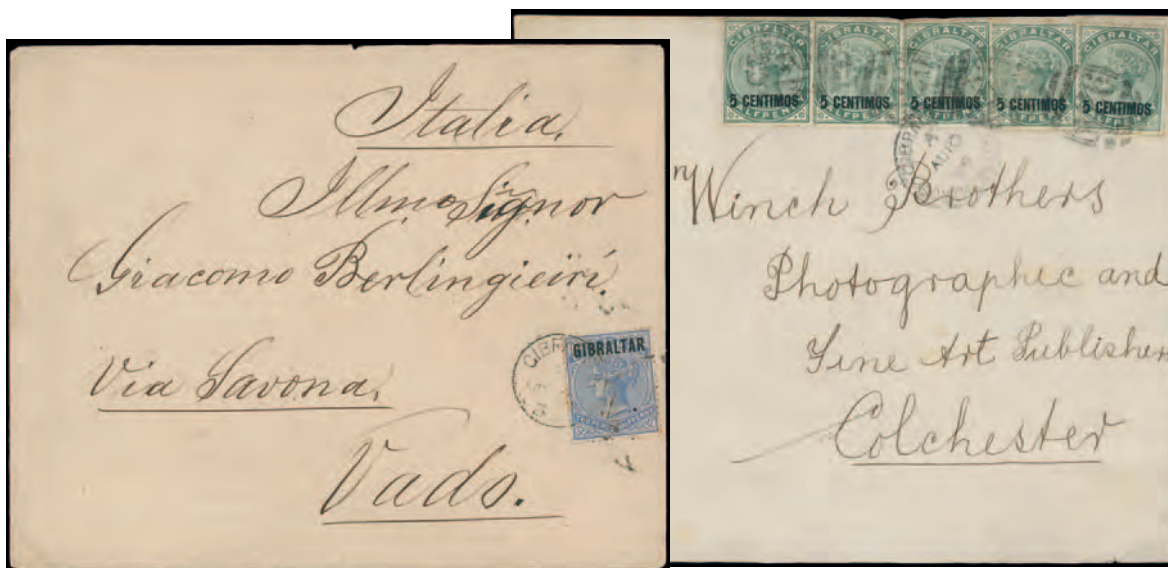 Italia.
Illmo Signor
Giacomo Berlingieiri.
Via Savona.
Vado.
GIBRALTAR
GIBRALTAR
GIBRALTAR
GIBRALTAR
GIBRALTAR
GIBRALTAR
5 CENTIMOS
5 CENTIMOS
5 CENTIMOS
5 CENTIMOS
5 CENTIMOS
Winch Brothers
Photographic and
Fine Art Publisher
Colchester